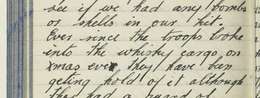 see if we had any bombs
or shells in our kit.
Ever since the troops broke
into the whisky cargo, on
xmas eve, they have been
getting hold of it although
they had a guard on